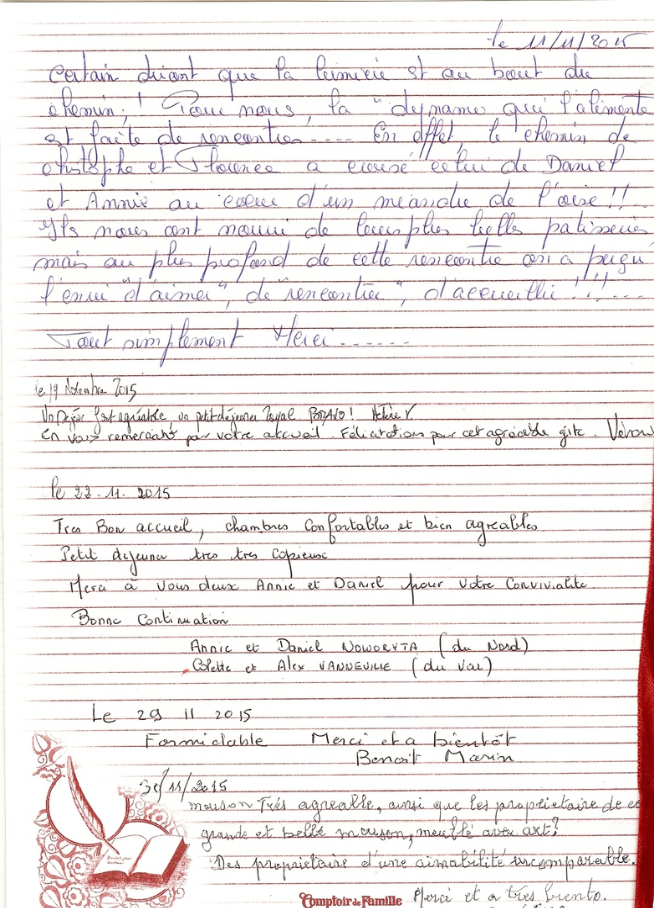 le 11/11/2015
Certain disent que la lumière st au bout du
chemin,! Pour nous, la "dynamo qui l'alimente
est faite de rencontres ..... En effet, le chemin de
christophe et Florence a croisé celui de Daniel
et Annie au coeur d'un méandre de l'oise!!
Ils nous ont nourri de leurs plus belles patisseries
mais au plus profond de cette rencontre on a perçu
l'envi "d'aimer", de "rencontrer", d'accueillir!!!....
Tout simplement Merci ......
le 19 Novembre 2015
Un séjour fort agréable un petit déjeuner Royal BRAVO!
En vous remerciant pour votre accueil. Félicitations pour cet agréable gite.
le 22.11.2015
Tres Bon accueil, chambres Confortables et bien agreables
Petit dejeuner tres tres Copieux
Merci à Vous deux Annie et Daniel pour Votre Convivialite.
Bonne Continuation
Annie et Daniel NOWORYTA (du Nord)
Colette et Alex VANNEUVILLE (du Var)
Le 29 11 2015
Formidable Merci et a bientôt
Benoit Marin
30/11/2015
maison Très agreable, ainsi que les proprietaire de
grande et belle maison, meublé avec art!
Des proprietaire d'une aimabilité incomparable.
Comptoir de Famille Merci et a très biento.